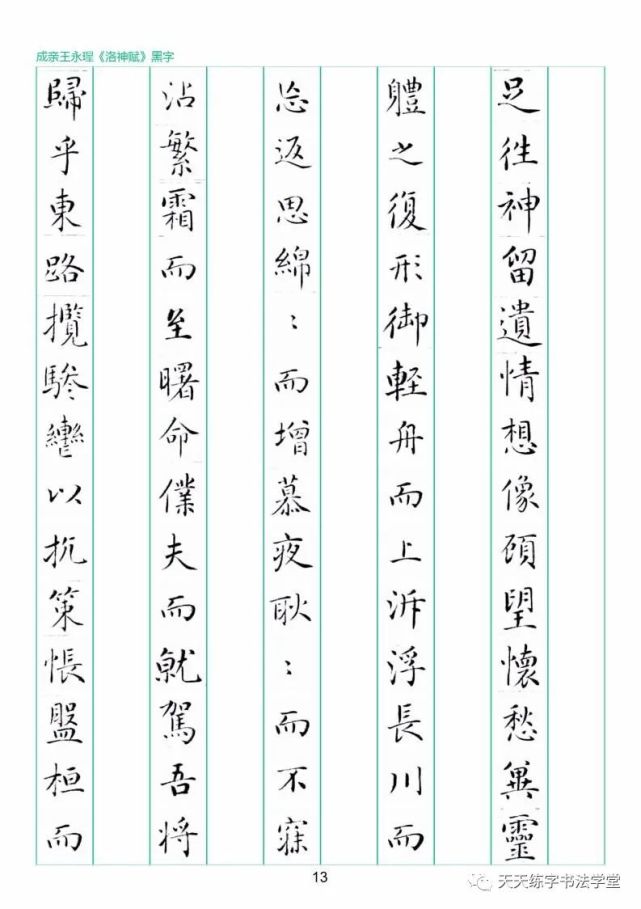 成亲王永瑆《洛神赋》黑字
足徃神留遺情想像頋望懷愁冀靈
體之復形御軽舟而上泝浮長川而
忘返思綿：而增慕夜耿：而不寐
沾繁霜而至曙命僕夫而就駕吾將
歸乎東路攬驂轡以抗策悵盤桓而
13
天天练字书法学堂